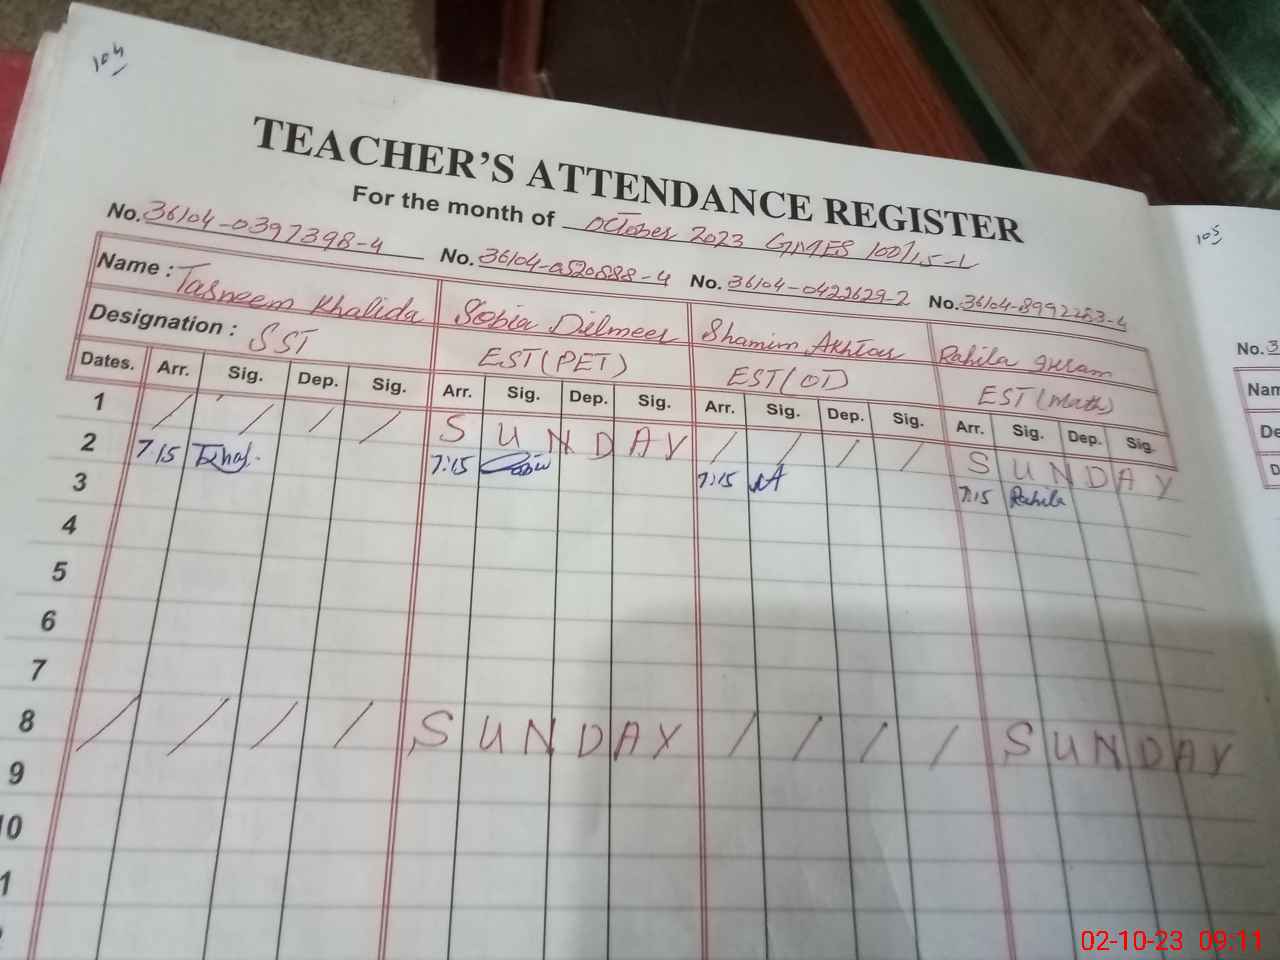 104
TEACHER'S ATTENDANCE REGISTER
For the month of October 2023 GMES 100/15-L
105
No. 36104-0397398-4 No. 36104-0520888-4 No. 36104-0422629-2 No. 36104-8992253-4
Name : Tasneem Khalida Sobia Dilmeer Shamim Akhtar Rahila
Designation : SST EST (PET) EST (OT) EST (Math)
Dates. Arr. Sig. Dep. Sig. Arr. Sig. Dep. Sig. Arr. Sig. Dep. Sig. Arr. Sig. Dep. Sig.
1 / / / / S U N D A Y / / / / S U N D A Y
2 7:15 7:15 7:15 7:15 Rahila
3
4
5
6
7
8 / / / / S U N D A Y / / / / S U N D A Y
9
10
1
No. 3
Nam
De
D
02-10-23 09:11